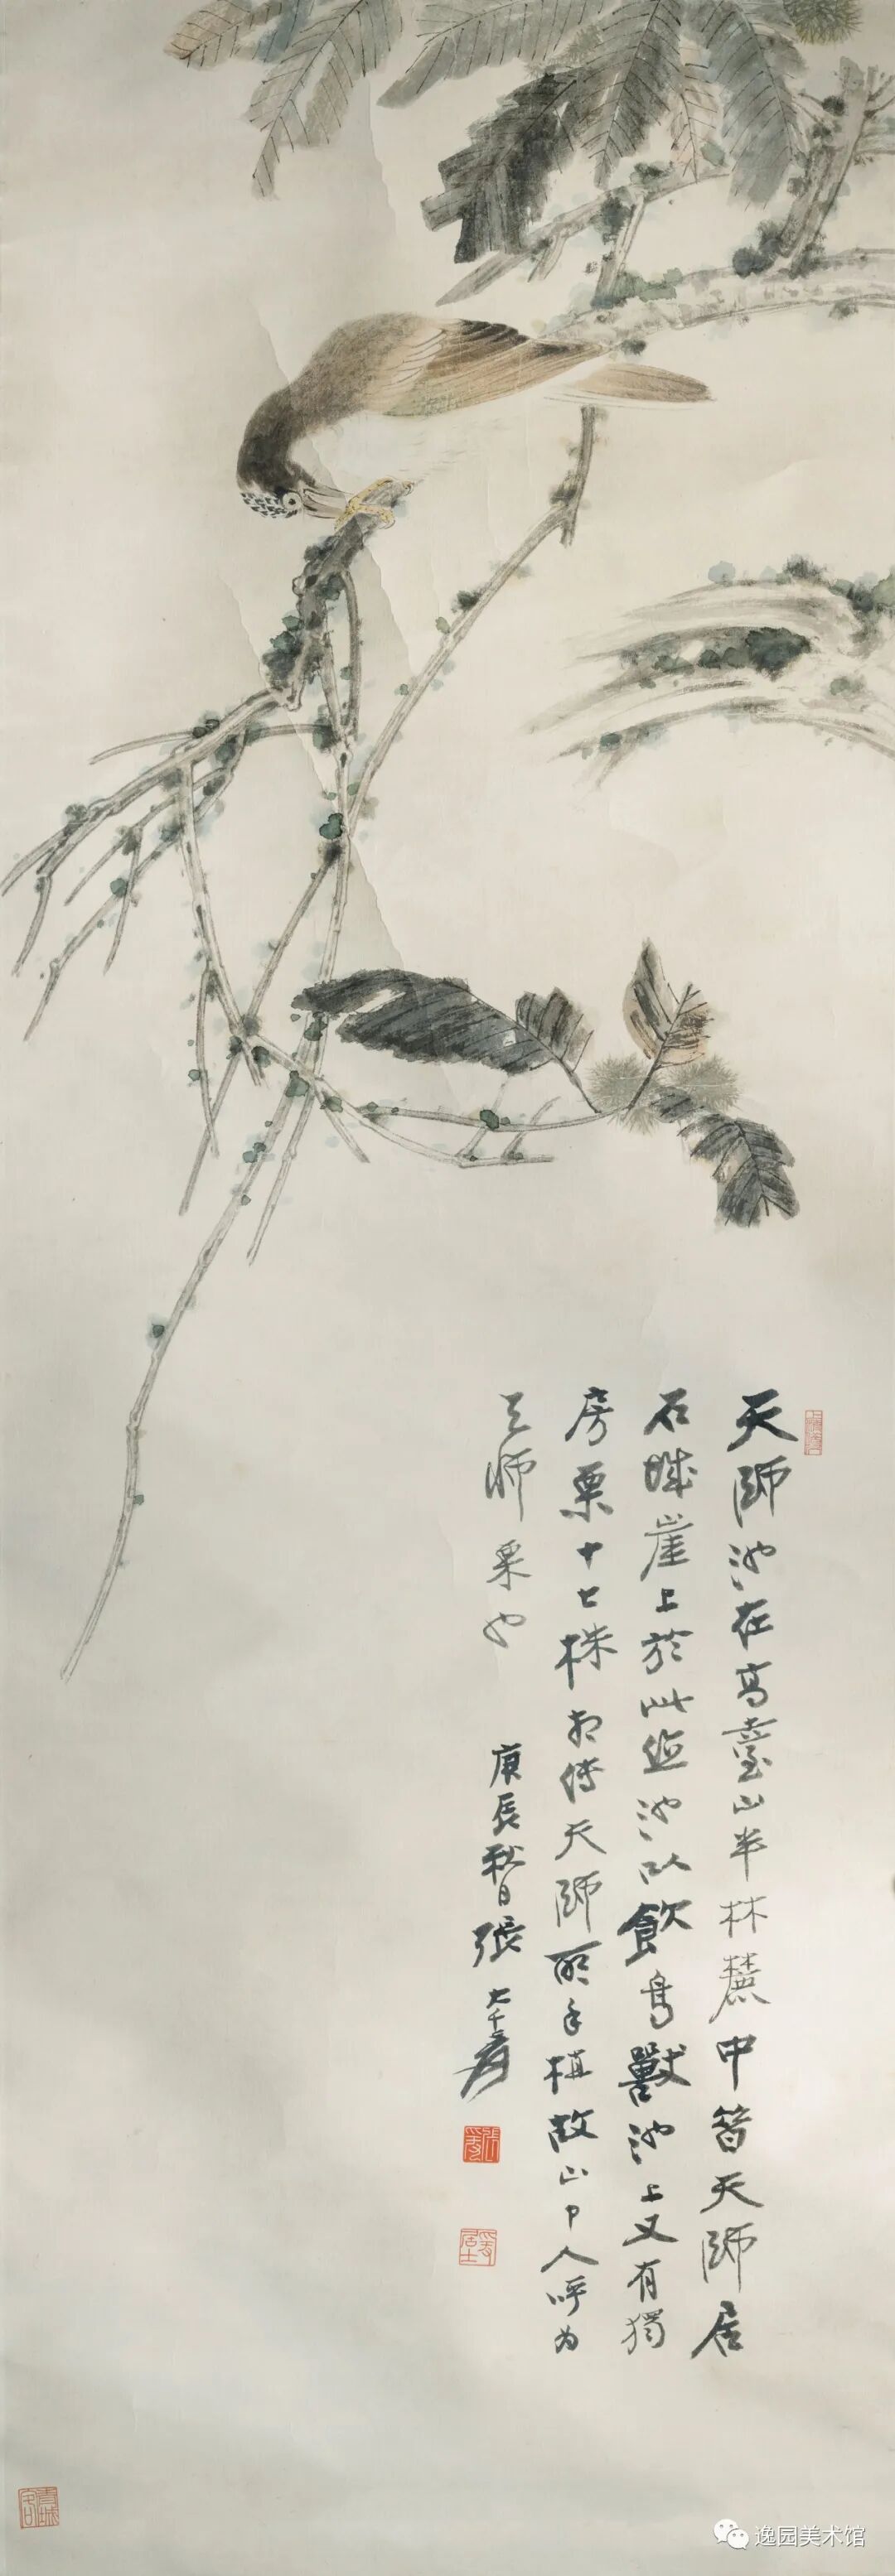 天師池在高臺山半林麓中昝天師居
石城崖上於此鑿池以飲鳥獸池上又有獨
房栗十七株相傳天師所手植故山中人呼為
天師栗也
庚辰秋日張大千爰
張爰
居士
青城客
逸园美术馆